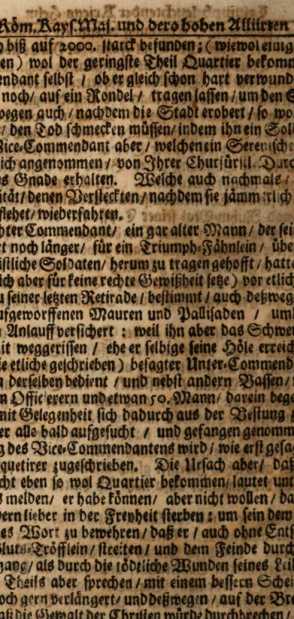 Röm. Kays. Maj. und dero hohen Alliirten
biß auf 2000. starck befunden; (wiewol einig
en) wol der geringste Theil Quartier bekomm
endant selbst / ob er gleich schon hart verwund
noch / auf ein Rondel / tragen lassen / um den S
wegen auch / nachdem die Stadt erobert / so wo
/ den Tod schmecken müssen / indem ihn ein Sol
Vice-Commendant aber / welchen ein Serenisch
lich angenommen / von Ihrer Churfürstl. Durc
s Gnade erhalten. Welche auch nachmals /
ität / denen Versteckten / nachdem sie jämmerlich
flehet / wiederfahren.
hter Commendant / ein gar alter Mann / der sei
rt noch länger / für ein Triumph-Fähnlein / über
istliche Soldaten / herum zu tragen gehofft / hatte
ich aber für keine rechte Gewißheit setze) vor etlich
u seiner letzten Retirade / bestimmt / auch deßweg
ufgeworffenen Mauren und Pallisaden / um
Anlauff versichert: weil ihn aber das Schwe
it weggerissen / ehe er selbige seine Höle erreich
ie etliche geschrieben) besagter Unter-Commend
derselben bedient / und nebst andern Bassen /
n Officierern und etwan 50. Mann / darein bege
mit Gelegenheit sich dadurch aus der Vestung /
er alle bald aufgesucht / und gefangen genomm
g des Vice-Commendantens wird / wie erst gesa
quetirer zugeschrieben. Die Ursach aber / daß
cht eben so wol Quartier bekommen / lautet unt
s melden / er habe können / aber nicht wollen / da
ern lieber in der Freyheit sterben: um sein dem
es Wort zu bewehren / daß er / auch ohne Ents
Bluts-Tröfflein / streiten / und dem Feinde durch
gang / als durch die tödtliche Wunden seines Leib
Theils aber sprechen / mit einem bessern Schei
och gern verlängert / und deßwegen / auf der Bre
aß die Gewalt der Christen würde durchbrechen /